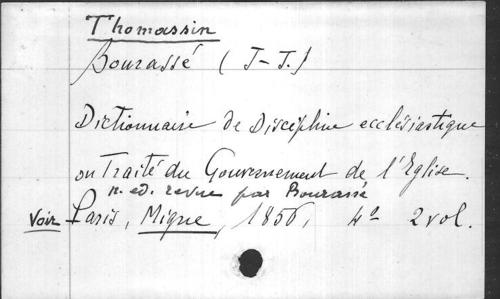 Thomassin
Bourassé (J-J.)
Dictionnaire de Discipline ecclésiastique
ou Traité du Gouvernement de l'Eglise.
n. ed. revue par Bourassé
Voir Paris, Migne, 1856, 4º 2 vol.